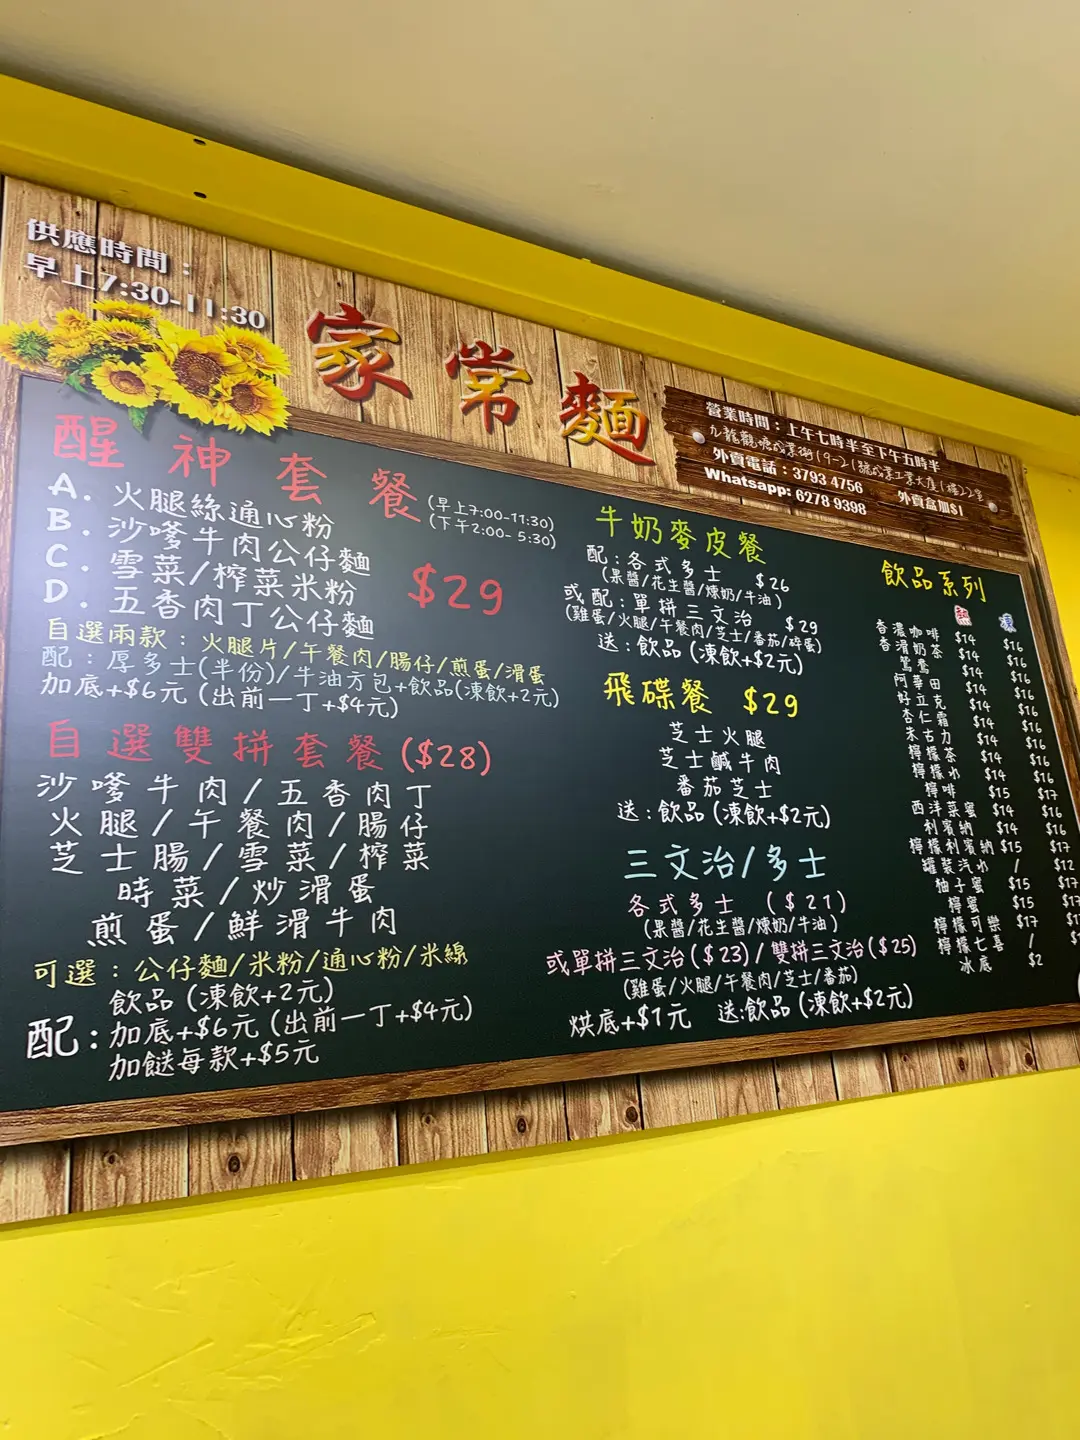 供應時間：
早上7:30-11:30
家常麵
營業時間：上午七時半至下午五時半
九龍觀塘成業街19-21號成業工業大廈1樓22室
外賣電話：3793 4756 外賣盒加$1
Whatsapp: 6278 9398
醒神套餐 (早上7:00-11:30)
(下午2:00- 5:30)
A. 火腿絲通心粉
B. 沙嗲牛肉公仔麵
C. 雪菜/榨菜米粉
D. 五香肉丁公仔麵
$29
自選兩款：火腿片/午餐肉/腸仔/煎蛋/滑蛋
配：厚多士(半份)/牛油方包+飲品(凍飲+2元)
加底+$6元 (出前一丁+$4元)
自選雙拼套餐($28)
沙嗲牛肉/五香肉丁
火腿/午餐肉/腸仔
芝士腸/雪菜/榨菜
時菜/炒滑蛋
煎蛋/鮮滑牛肉
可選：公仔麵/米粉/通心粉/米線
配：飲品 (凍飲+2元)
加底+$6元 (出前一丁+$4元)
加餸每款+$5元
牛奶麥皮餐
配：各式多士 $26
(果醬/花生醬/煉奶/牛油)
或配：單拼三文治 $29
(雞蛋/火腿/午餐肉/芝士/番茄/碎蛋)
送：飲品 (凍飲+$2元)
飛碟餐 $29
芝士火腿
芝士鹹牛肉
番茄芝士
送：飲品 (凍飲+$2元)
三文治/多士
各式多士 ($21)
(果醬/花生醬/煉奶/牛油)
或單拼三文治($23)/雙拼三文治($25)
(雞蛋/火腿/午餐肉/芝士/番茄)
烘底+$1元 送:飲品 (凍飲+$2元)
飲品系列
熱 凍
香濃咖啡 $14 $16
香滑奶茶 $14 $16
鴛鴦 $14 $16
阿華田 $14 $16
好立克 $14 $16
杏仁霜 $14 $16
朱古力 $14 $16
檸檬茶 $14 $16
檸檬水 $14 $16
檸啡 $15 $17
西洋菜蜜 $14 $16
利賓納 $14 $16
檸檬利賓納 $15 $17
罐裝汽水 / $12
柚子蜜 $15 $17
檸蜜 $15 $17
檸檬可樂 $17
檸檬七喜 /
冰底 $2